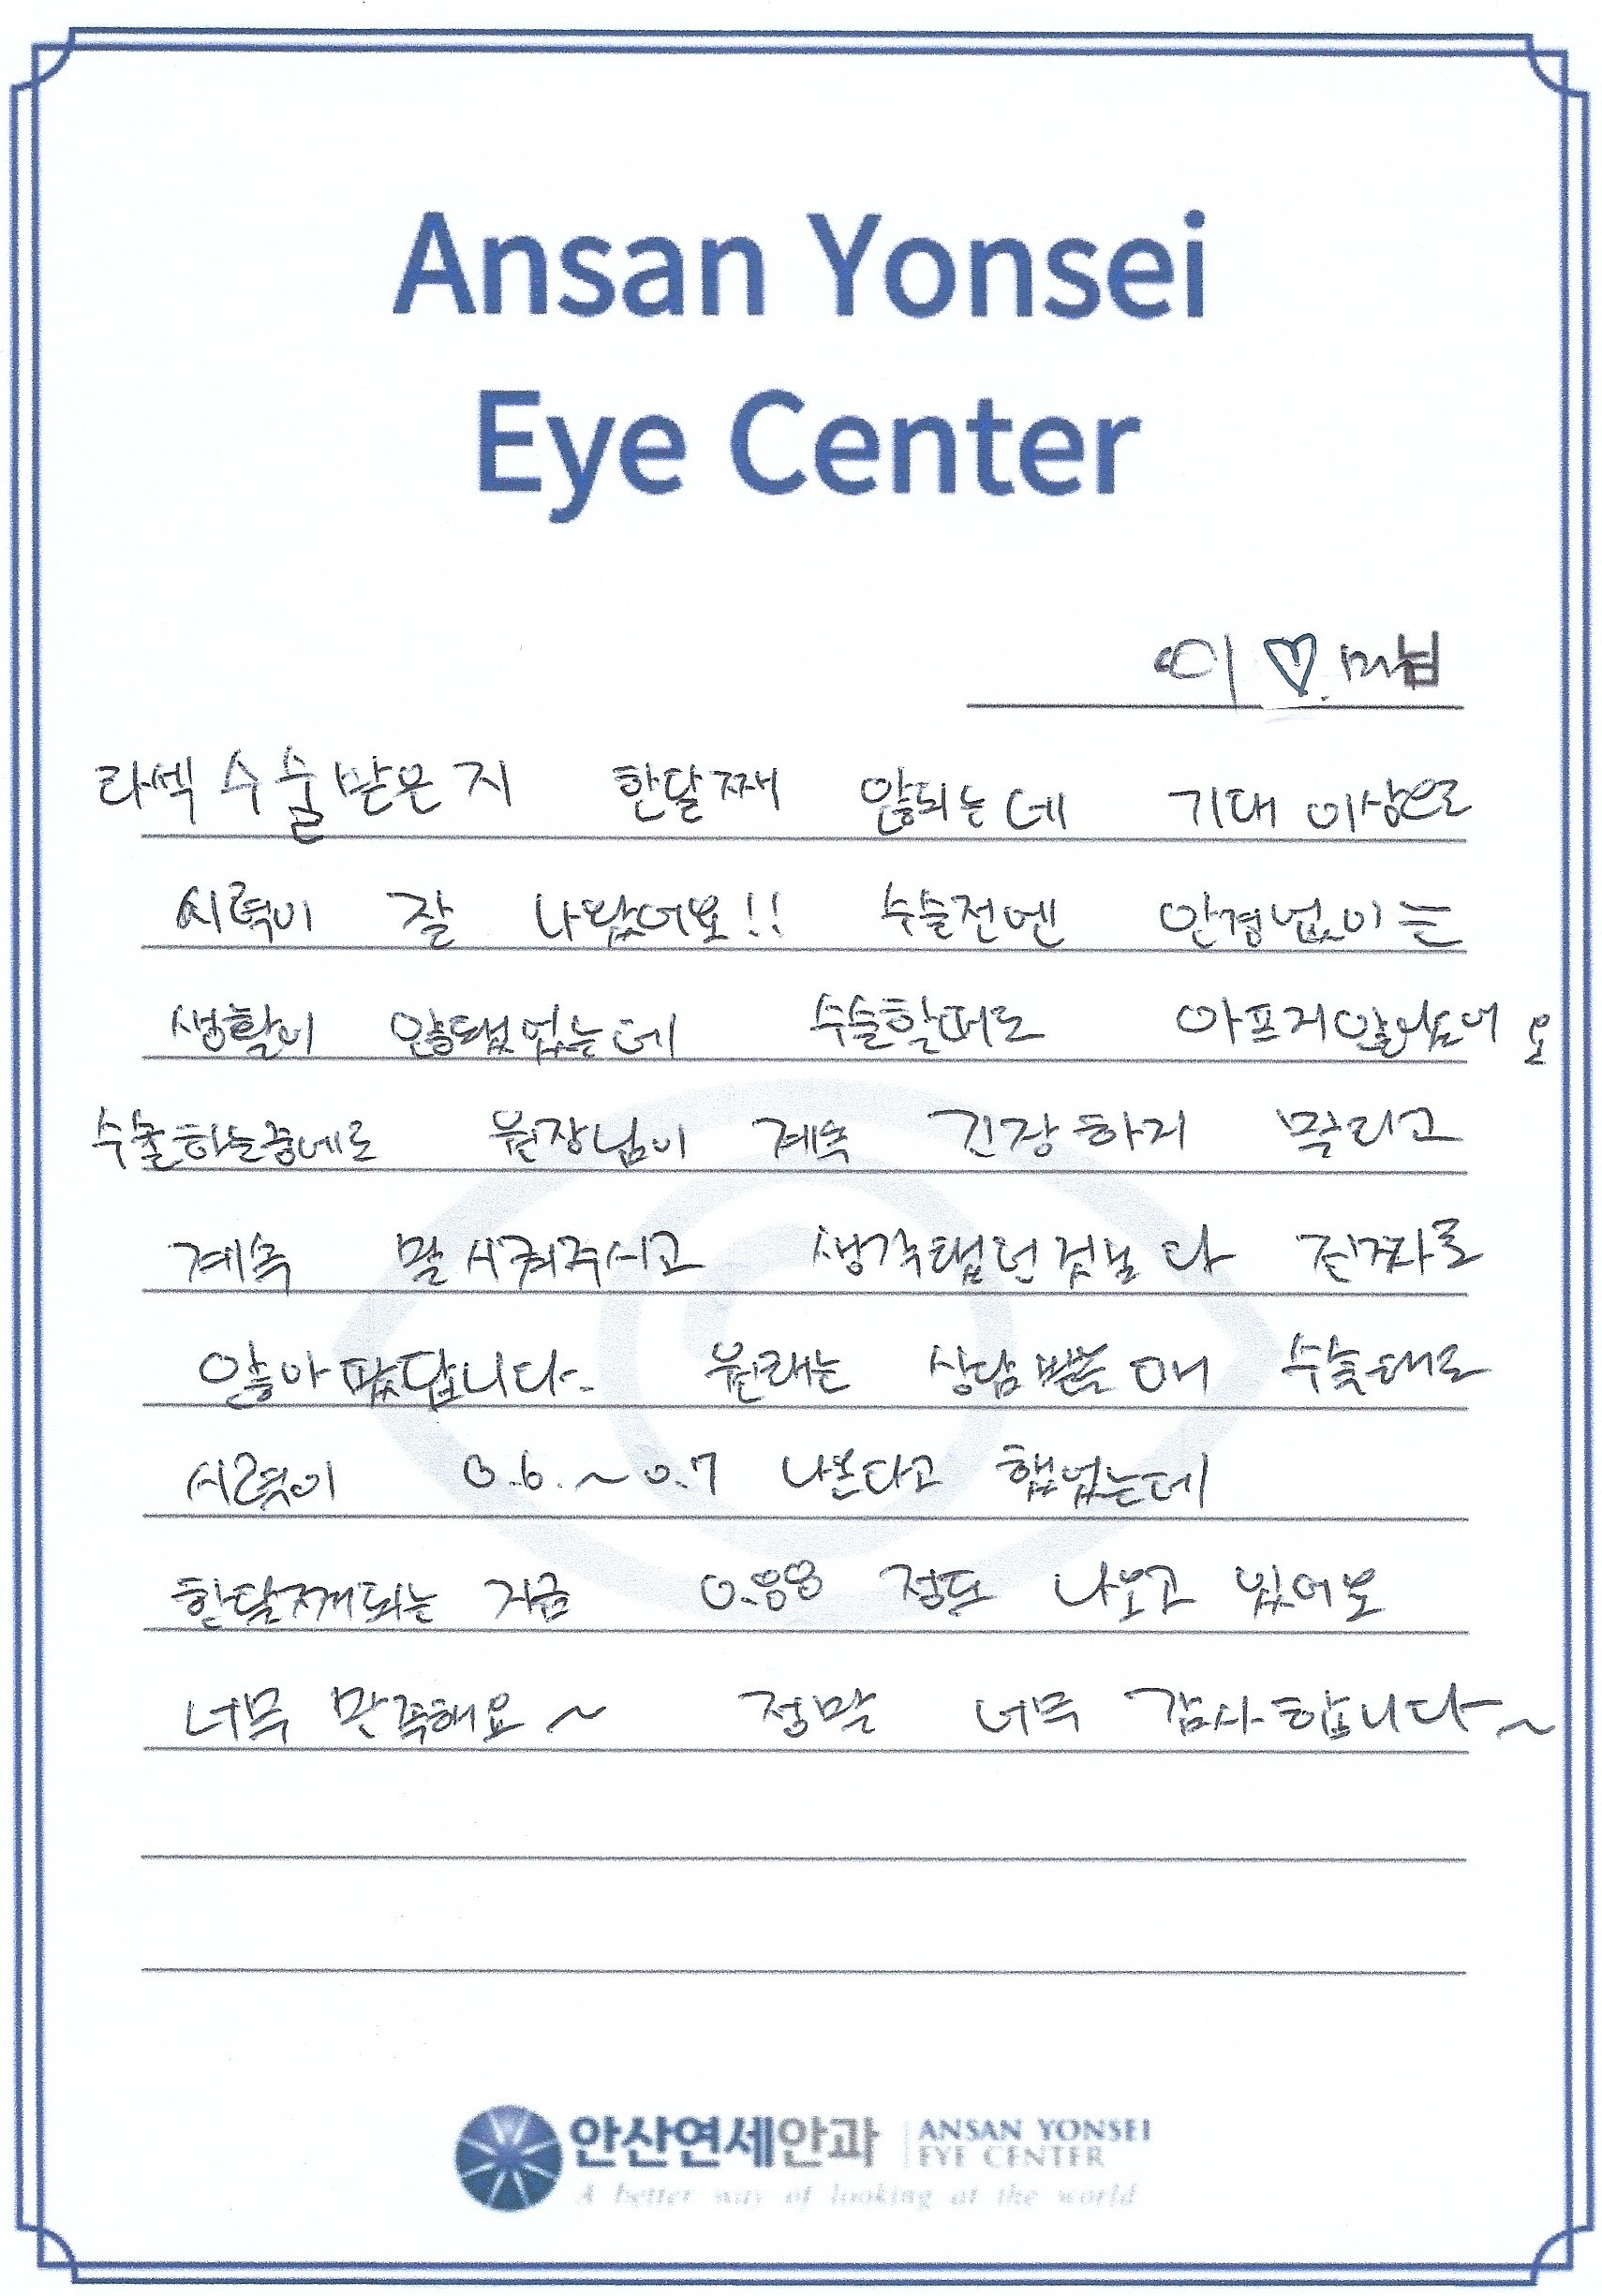 Ansan Yonsei
Eye Center
이 ♡ 미님
라섹 수술받은지 한달째 않되는데 기대 이상으로
시력이 잘 나왔어요!! 수술전엔 안경없이는
생활이 않됐었는데 수술할때도 아프지않았어요
수술하는중에도 원장님이 계속 긴장하지 말라고
계속 말시켜주시고 생각했던것보다 진짜로
않아팠답니다. 원래는 상담 받을때 수술해도
시력이 0.6.~0.7 나온다고 했었는데
한달째되는 지금 0.88 정도 나오고 있어요
너무 만족해요~ 정말 너무 감사합니다~
안산연세안과 ANSAN YONSEI
EYE CENTER
A better way of looking at the world